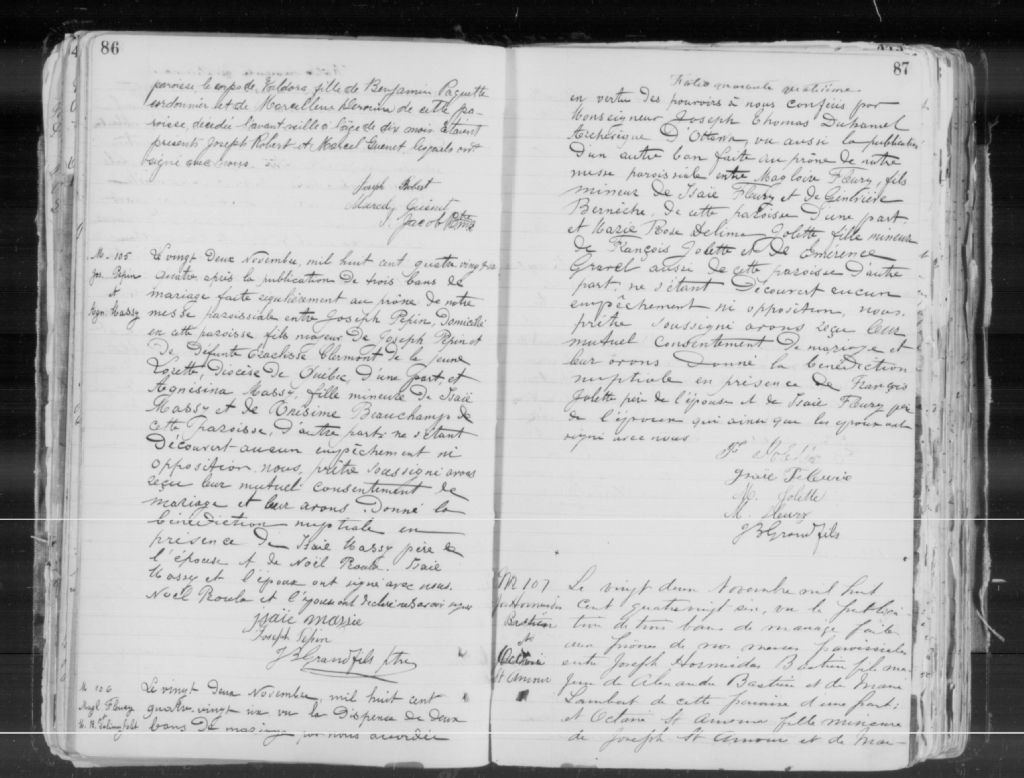 86
paroisse le corps de fille de Benjamin Paquette
cordonnier et de Marcelline de cette pa-
roisse, décédée l'avant veille à l'âge de dix mois. Etaient
présents Joseph Robert et Marcel Guenet lesquels ont
signé avec nous.
Joseph Robert
Marcel Guenet
J. Jacob Ptre
M. 105
Jos. Pepin
et
Agn. Massy
Le vingt deux Novembre, mil huit cent quatre vingt six
après la publication de trois bans de
mariage faite régulièrement au prône de notre
messe paroissiale entre Joseph Pepin, domicilié
en cette paroisse fils majeur de Joseph Pepin et
de défunte Clermont de la Jeune
Lorette, Diocèse de Québec, d'une part, et
Agnésina Massy, fille mineure de Isaïe
Massy et de Onésime Beauchamp de
cette paroisse, d'autre part; ne s'étant
découvert aucun empêchement ni
opposition, nous, prêtre soussigné avons
reçu leur mutuel consentement de
mariage et leur avons donné la
bénédiction nuptiale en
présence de Isaïe Massy père de
l'épouse et de Noël Roula. Isaïe
Massy et l'époux ont signé avec nous.
Noël Roula et l'épouse ont déclaré ne savoir signer
Isaïe Massie
Joseph Pepin
JB Grandfils ptre
M 106
Magl Fleury
M. R. Jolette
Le vingt deux Novembre, mil huit cent
quatre vingt six vu la dispense de deux
bans de mariage par nous accordée
87
Folio quarante quatrième
en vertu des pouvoirs à nous confiés par
Monseigneur Joseph Thomas Duhamel
Archevêque D'Ottawa, vu aussi la publication
d'un autre ban faite au prône de notre
messe paroissiale entre Magloire Fleury, fils
mineur de Isaïe Fleury et de Geneviève
Berniche, de cette paroisse d'une part
et Marie Rose Delima Jolette fille mineure
de François Jolette et de Emérence
Gravel aussi de cette paroisse d'autre
part, ne s'étant découvert aucun
empêchement ni opposition, nous,
prêtre soussigné avons reçu leur
mutuel consentement de mariage et
leur avons donné la bénédiction
nuptiale en présence de François
Jolette père de l'épouse et de Isaïe Fleury père
de l'époux qui ainsi que les époux ont
signé avec nous
F Jolette
Isaïe Fleurie
M. Jolette
M. Fleury
JB Grandfils
M 107
Jos Hormisdas
Bastien
et
Octavie
St Amour
Le vingt deux Novembre mil huit
cent quatrevingt six, vu la publica-
tion de trois bans de mariage faite
aux prônes de nos messes paroissiales
entre Joseph Hormidas Bastien fils ma-
jeur de Alexandre Bastien et de Marie
Lambert de cette paroisse d'une part;
et Octavie St Amour fille mineure
de Joseph St Amour et de Mar-